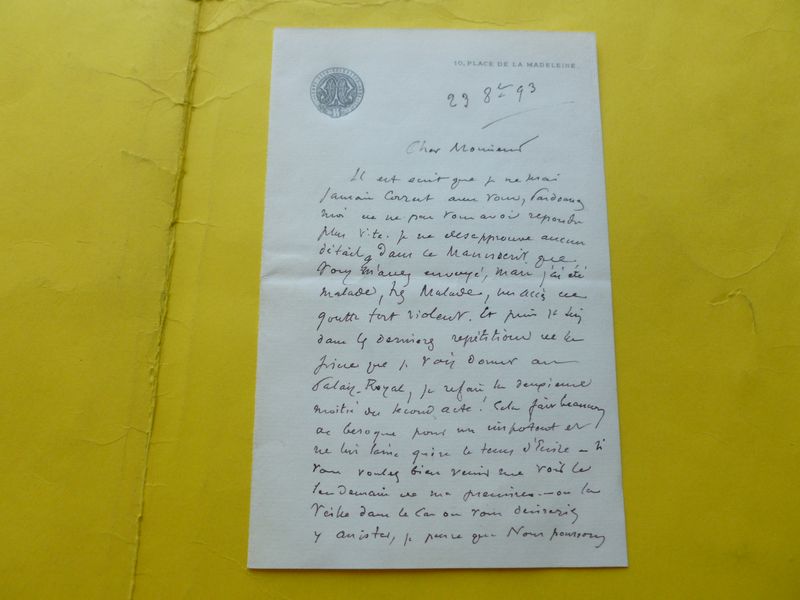 10, PLACE DE LA MADELEINE.
29 8bre 93
Cher Monsieur
Il est écrit que je ne serai
jamais correct avec vous, Pardonnez
moi de ne pas vous avoir repondu
plus vite. je ne desapprouve aucun
détail dans le Manuscrit que
Vous m'avez envoyé, mais j'ai été
malade, très Malade, un accès de
goutte fort violent. Et puis je suis
dans les dernieres repétitions de la
pièce que je vais donner au
Palais-Royal, je refais la deuxieme
moitié du second acte! Cela fait beaucoup
de besogne pour un impotent et
ne lui laisse guère le temps d'Ecrire - Si
vous voulez bien venir me voir le
lendemain de ma premiere - ou la
Veille dans le Cas ou vous desireriez
y assister, je pense que Nous pourrons